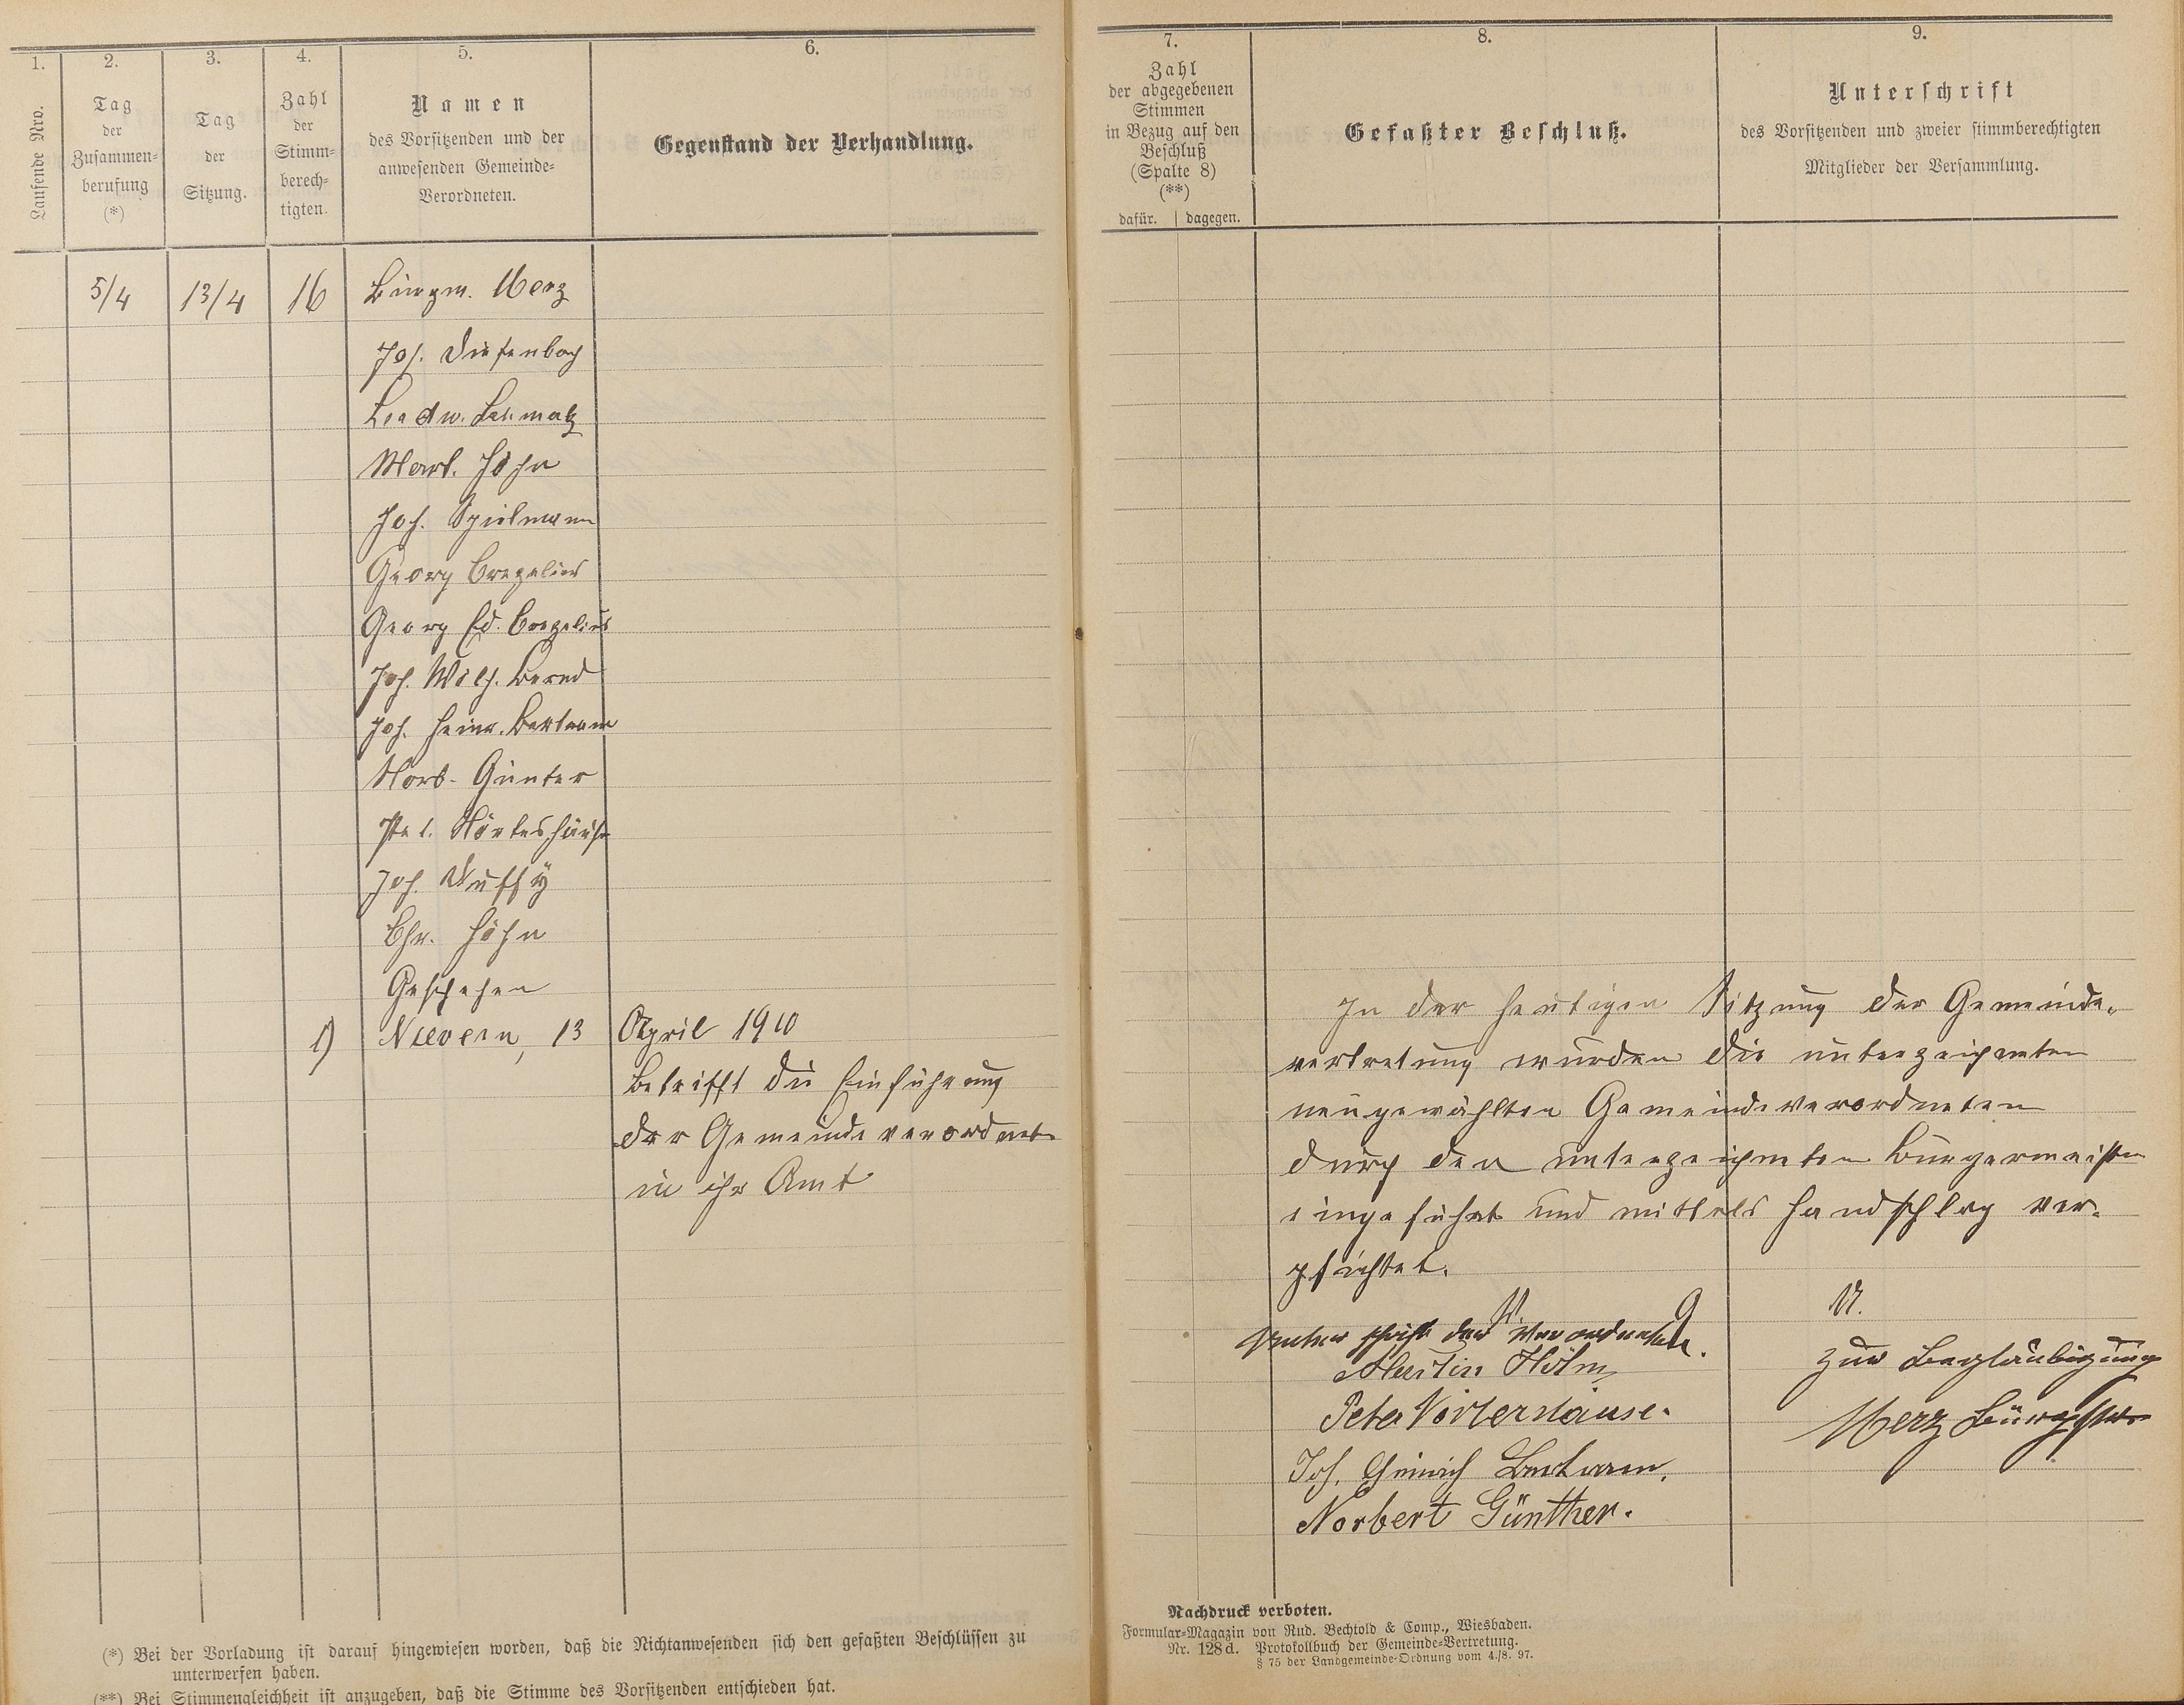 1.
Laufende Nro.
2.
Tag
der
Zusammen-
berufung
(*)
3.
Tag
der
Sitzung.
4.
Zahl
der
Stimm-
berech-
tigten.
5.
Namen
des Vorsitzenden und der
anwesenden Gemeinde-
Verordneten.
6.
Gegenstand der Verhandlung.
5/4 13/4 16 Bürgm. Merz
Jos. Diefenbach
Ludw. Lehmatz
Mart. Höhn
Joh. Spielmann
Georg Cregelius
Georg Ed. Cregelius
Joh. Wilh. Bernd
Joh. Heinr. Bertram
Norb. Günter
Pet. Nörtershäuse
Joh. Duffÿ
Chr. Höhn
Geschehen
1) Nievern, 13 April 1910
Betrifft die Einführung
der Gemeindeverordnet
in ihr Amt
(*) Bei der Vorladung ist darauf hingewiesen worden, daß die Nichtanwesenden sich den gefaßten Beschlüssen zu
unterwerfen haben.
(**) Bei Stimmengleichheit ist anzugeben, daß die Stimme des Vorsitzenden entschieden hat.
7.
Zahl
der abgegebenen
Stimmen
in Bezug auf den
Beschluß
(Spalte 8)
(**)
dafür. dagegen.
8.
Gefaßter Beschluß.
9.
Unterschrift
des Vorsitzenden und zweier stimmberechtigten
Mitglieder der Versammlung.
In der heutigen Sitzung der Gemeinde-
vertretung wurden die unterzeichneten
neugewählten Gemeindeverordneten
durch den unterzeichneten Bürgermeister
eingeführt und mittels Handschlag ver-
pflichtet.
V. G. U.
Unterschrift der Verordneten.
Martin Höhn
Peter Nörtershäuse.
Joh. Heinrich Bertram.
Norbert Günther.
zur Beglaubigung
Merz Bürgstr
Nachdruck verboten.
Formular-Magazin von Rud. Bechtold & Comp., Wiesbaden.
Nr. 128d. Protokollbuch der Gemeinde-Vertretung.
§ 75 der Landgemeinde-Ordnung vom 4./8. 97.